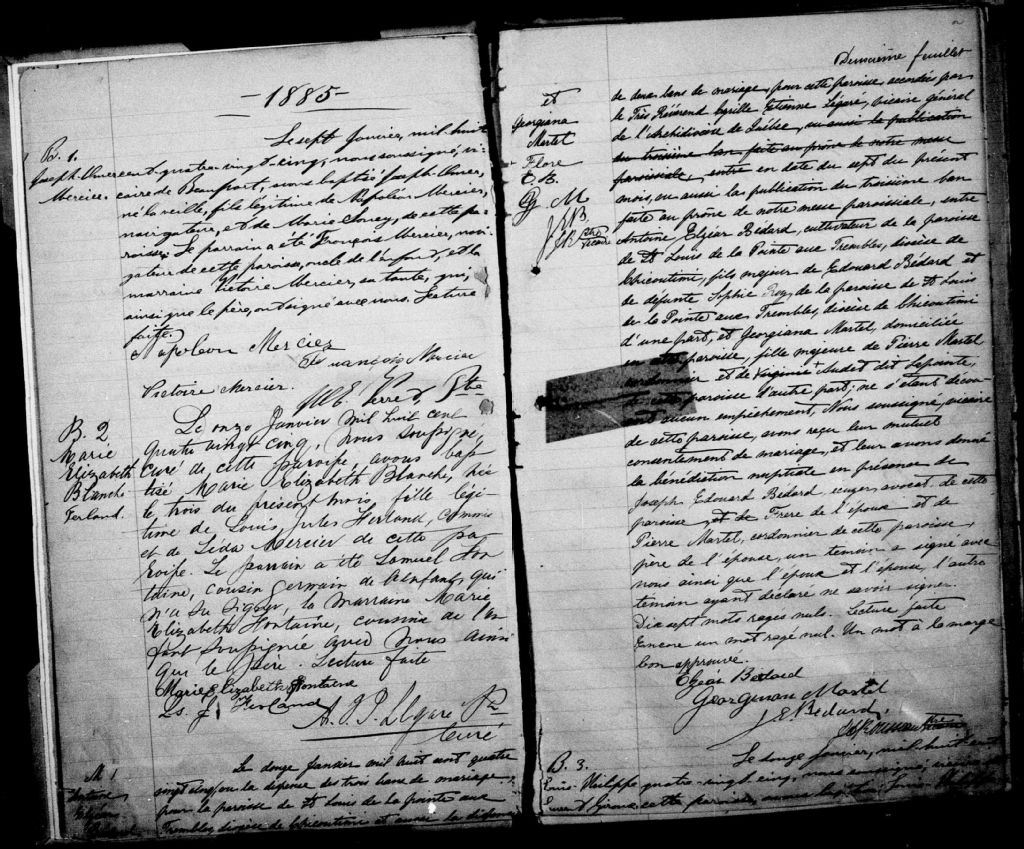 - 1885 -
B. 1.
Joseph
Mercier.
Le sept Janvier, mil huit
cent quatre vingt-cinq, nous soussigné, vi-
caire de Beauport, avons baptisé Joseph
né la veille, fils légitime de Napoléon Mercier,
navigateur, et de Marie de cette pa-
roisse. Le parrain a été François Mercier, navi-
gateur de cette paroisse, oncle de l'enfant, et la
marraine Victoire Mercier, sa tante, qui,
ainsi que le père, ont signé avec nous. Lecture
faite.
Napoleon Mercier
François Mercier
Victoire Mercier.
Ptre
B. 2
Marie
Elizabeth
Blanche
Ferland.
Le onze Janvier mil huit cent
quatre vingt cinq, nous soussigné,
Curé de cette paroisse, avons bap
tisé Marie Elizabeth Blanche, née
le trois du présent mois, fille légi-
time de Louis Jules Ferland, commis
et de Lida Mercier de cette pa
roisse. Le parrain a été Samuel Fon
taine, cousin germain de l'enfant, qui
n'a su signer, la marraine Marie
Elizabeth Fontaine, cousine de l'en
fant soussignée avec nous ainsi
que le père. Lecture faite
Marie Elizabeth Fontaine
Ls. J. Ferland
Légaré Ptre
Curé
M 1
Antoine
Elzéar
Bédard
Le douze Janvier mil huit cent quatre
vingt cinq, vu la dispense des trois bans de mariage,
pour la paroisse de St Louis de la Pointe aux
Trembles, diocèse de Chicoutimi et aussi la dispense
Deuxième feuillet
et
Georgiana
Martel
Flore
E. B.
G M
J E B
Ptre
Vicaire
de deux bans de mariage, pour cette paroisse accordée par
le Très Révérend Cyrille Etienne Légaré, vicaire général
de l'Archidiocèse de Québec, vu aussi la publication
du troisième ban faite au prône de notre messe
paroissiale, entre en date du sept du présent
mois, vu aussi la publication du troisième ban
faite au prône de notre messe paroissiale, entre
Antoine Elzéar Bédard, cultivateur de la paroisse
de St Louis de la Pointe aux Trembles, diocèse de
Chicoutimi, fils majeur de Edouard Bédard et
de défunte Sophie Roy, de la paroisse de St Louis
de la Pointe aux Trembles, diocèse de Chicoutimi
d'une part, et Georgiana Martel, domiciliée
en cette paroisse, fille majeure de Pierre Martel
cordonnier et de Virginie Audet dit Lapointe,
de cette paroisse d'autre part; ne s'étant décou-
vert aucun empêchement, Nous soussigné, vicaire
de cette paroisse, avons reçu leur mutuel
consentement de mariage, et leur avons donné
la bénédiction nuptiale en présence de
Joseph Edouard Bédard, écuyer, avocat de cette
paroisse, et de Frère de l'époux et de
Pierre Martel, cordonnier de cette paroisse,
père de l'épouse, un témoin a signé avec
nous ainsi que l'époux et l'épouse, l'autre
témoin ayant déclaré ne savoir signer.
Dix sept mots rayés nuls. Lecture faite
Encore un mot rayé nul. Un mot à la marge
bon approuvé.
Elzéar Bédard
Georgiana Martel
J E Bédard.
Ptre
Vicaire
B. 3.
Louis Philippe
Giroux
Le douze Janvier, mil huit cent
quatre-vingt-cinq, nous soussigné, vicaire de
cette paroisse, avons baptisé Louis